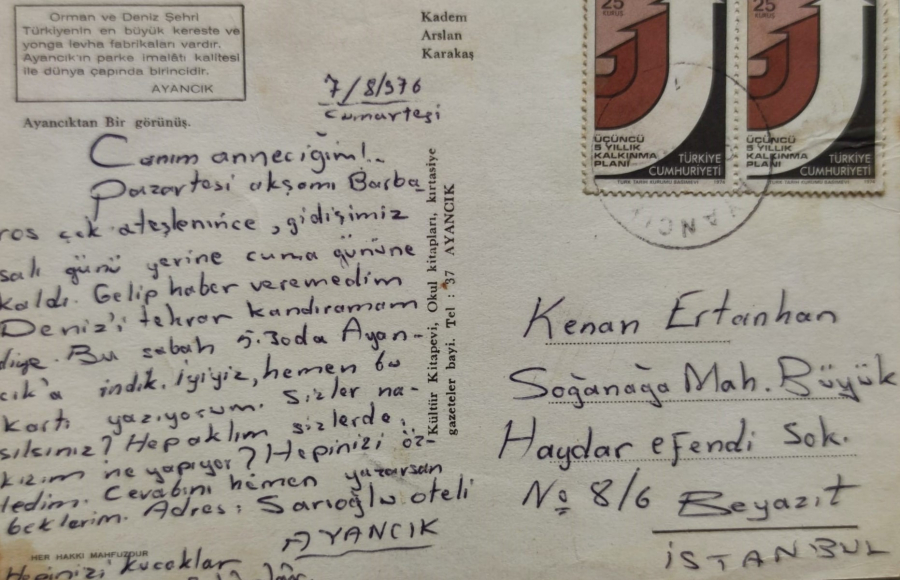 Orman ve Deniz Şehri
Türkiyenin en büyük kereste ve
yonga levha fabrikaları vardır.
Ayancık'ın parke imalâtı kalitesi
ile dünya çapında birincidir.
AYANCIK
Ayancıktan Bir görünüş.
Kadem
Arslan
Karakaş
7/8/976
Cumartesi
Canım anneciğim!..
Pazartesi akşamı Barba-
ros çok ateşlenince, gidişimiz
salı günü yerine cuma gününe
kaldı. Gelip haber veremedim
Deniz'i tekrar kandıramam
diye. Bu sabah 5.30da Ayan-
cık'a indik. İyiyiz, hemen bu
kartı yazıyorum. Sizler na-
sılsınız? Hep aklım sizlerde.
kızım ne yapıyor? Hepinizi öz-
ledim. Cevabını hemen yazarsan
beklerim. Adres: Sarıoğlu oteli
AYANCIK
HER HAKKI MAHFUZDUR
Hepinizi kucaklar
Kültür Kitapevi, Okul kitapları, kırtasiye
gazeteler bayi. Tel : 37 AYANCIK
25
KURUŞ
ÜÇÜNCÜ
5 YILLIK
KALKINMA
PLANI
TÜRKİYE
CUMHURİYETİ
25
KURUŞ
ÜÇÜNCÜ
5 YILLIK
KALKINMA
PLANI
TÜRKİYE
CUMHURİYETİ
AYANCIK
Kenan Ertanhan
Soğanağa Mah. Büyük
Haydar efendi Sok.
No 8/6 Beyazıt
İSTANBUL